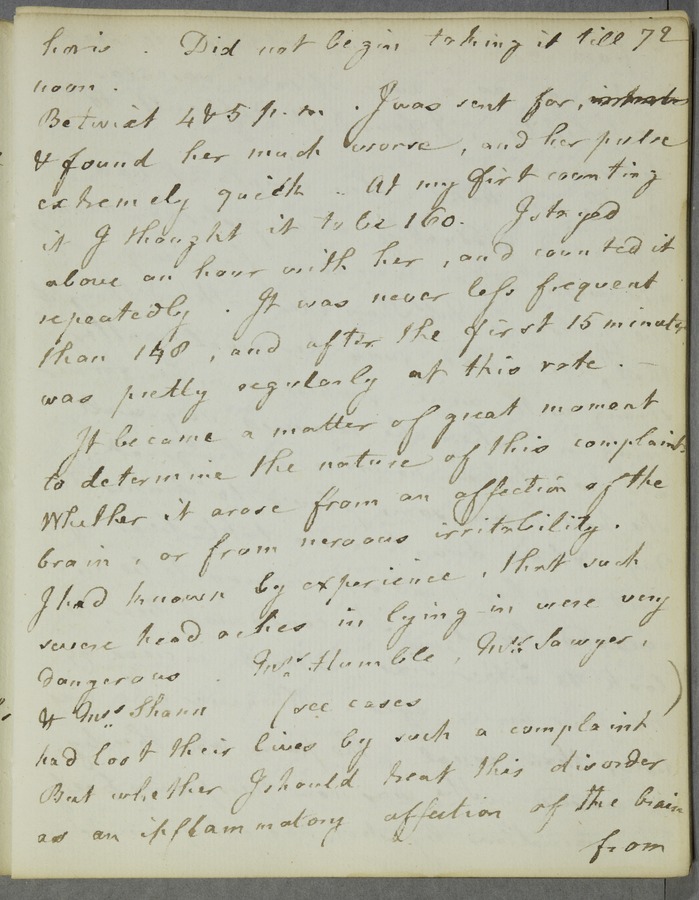 horis . Did not begin taking it till 72
noon .
Betwixt 4 & 5 p. m . I was sent for,
& found her much worse, and her pulse
extremely quick . At my first counting
it I thought it to be 160. I stayed
above an hour with her, and counted it
repeatedly . It was never less frequent
than 148, and after the first 15 minutes
was pretty regularly at this rate . —
It became a matter of great moment
to determine the nature of this complaint.
Whether it arose from an affection of the
brain, or from nervous irritability.
I had known by experience, that such
severe head aches in lying-in were very
dangerous . Mrs Humble, Mrs Sawyer,
& Mrs Shann (see cases )
had lost their lives by such a complaint
But whether I should treat this disorder
as an inflammatory affection of the brain
from